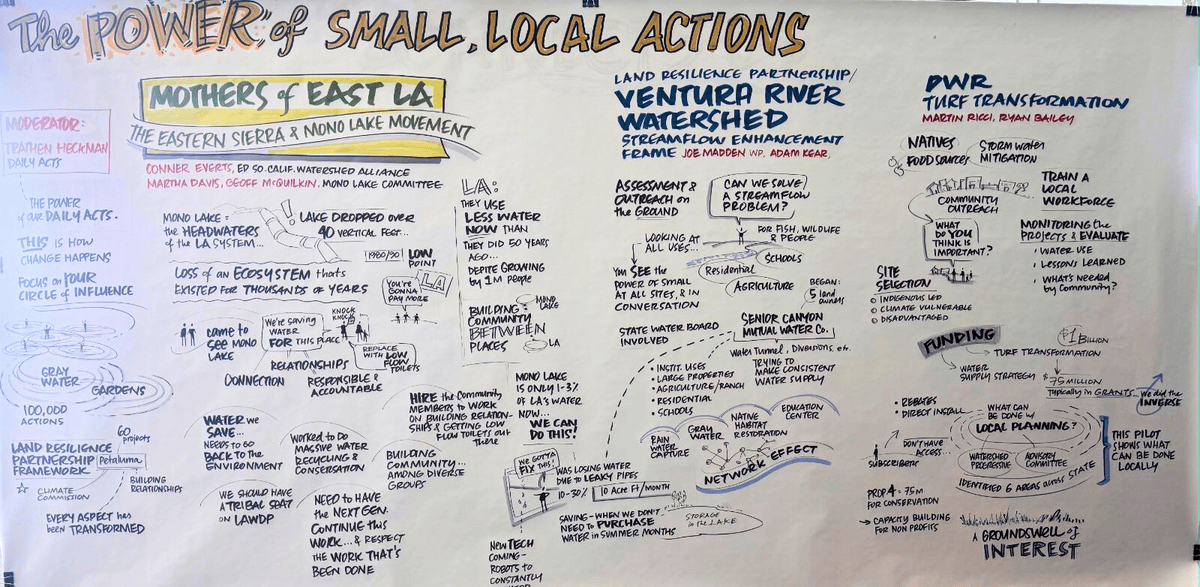 The POWER of SMALL, LOCAL ACTIONS
MODERATOR:
TRATHEN HECKMAN
DAILY ACTS
THE POWER
of our DAILY ACTS.
THIS IS HOW
CHANGE HAPPENS
FOCUS on YOUR
CIRCLE of INFLUENCE
GRAY
WATER
GARDENS
100,000
ACTIONS
60
projects
LAND RESILIENCE
PARTNERSHIP
FRAMEWORK
Petaluma
CLIMATE
COMMISSION
BUILDING
RELATIONSHIPS
EVERY ASPECT has
been TRANSFORMED
MOTHERS of EAST LA
THE EASTERN SIERRA & MONO LAKE MOVEMENT
CONNER EVERTS, ED SO. CALIF. WATERSHED ALLIANCE
MARTHA DAVIS, GEOFF McQUILKIN, MONO LAKE COMMITTEE
MONO LAKE =
the HEADWATERS
of the LA SYSTEM...
!
LAKE DROPPED OVER
40 VERTICAL FEET...
1980/90
LOW
POINT
LOSS of an ECOSYSTEM that's
EXISTED FOR THOUSANDS of YEARS
YOU'RE
GONNA
PAY MORE
LA
came to
see MONO
LAKE
We're saving
WATER
FOR THIS PLACE
KNOCK
KNOCK
REPLACE
WITH LOW
FLOW
TOILETS
RELATIONSHIPS
CONNECTION
RESPONSIBLE &
ACCOUNTABLE
WATER we
SAVE...
NEEDS to GO
BACK to the
ENVIRONMENT
WORKED to DO
MASSIVE WATER
RECYCLING &
CONSERVATION
HIRE the Community
MEMBERS to WORK
ON BUILDING RELATION-
SHIPS & GETTING LOW
FLOW TOILETS OUT
there
BUILDING
COMMUNITY...
AMONG DIVERSE
GROUPS
WE SHOULD HAVE
A TRIBAL SEAT
on LAWDP
NEED to HAVE
the NEXT GEN.
CONTINUE this
WORK... & RESPECT
the WORK THAT'S
BEEN DONE
LA:
THEY USE
LESS WATER
NOW THAN
THEY DID 50 YEARS
AGO...
DEPITE GROWING
by 1M PEOPLE
BUILDING
COMMUNITY
BETWEEN
PLACES
MONO
LAKE
LA
MONO LAKE
IS ONLY 1-3%
OF LA'S WATER
NOW...
WE CAN
DO THIS!
LAND RESILIENCE PARTNERSHIP/
VENTURA RIVER
WATERSHED
STREAMFLOW ENHANCEMENT
FRAME JOE MADDEN WP. ADAM KEAR,
ASSESSMENT &
OUTREACH on
the GROUND
CAN WE SOLVE
A STREAMFLOW
PROBLEM?
FOR FISH, WILDLIFE
& PEOPLE
LOOKING AT
ALL USES...
SCHOOLS
Residential
AGRICULTURE
YOU SEE the
POWER of SMALL
AT ALL SITES, & IN
CONVERSATION
BEGAN:
5 land
owners
STATE WATER BOARD
INVOLVED
SENIOR CANYON
MUTUAL WATER Co.
Water Tunnel, Diversions, etc.
TRYING TO
MAKE CONSISTENT
WATER SUPPLY
• INSTIT. USES
• LARGE PROPERTIES
• AGRICULTURE/RANCH
• RESIDENTIAL
• SCHOOLS
RAIN
WATER
CAPTURE
GRAY
WATER
NATIVE
HABITAT
RESTORATION
EDUCATION
CENTER
NETWORK EFFECT
WE GOTTA
FIX THIS!
WAS LOSING WATER
DUE to LEAKY PIPES
10-30%
10 Acre Ft/MONTH
SAVING - WHEN WE DON'T
NEED to PURCHASE
WATER IN SUMMER MONTHS
STORAGE
in the LAKE
NEW TECH
COMING -
ROBOTS to
CONSTANTLY
DWR
TURF TRANSFORMATION
MARTIN RICCI, RYAN BAILEY
NATIVES
FOOD SOURCES
STORMWATER
MITIGATION
COMMUNITY
OUTREACH
TRAIN A
LOCAL
WORKFORCE
WHAT
DO YOU
THINK IS
IMPORTANT?
MONITORING the
PROJECTS & EVALUATE
• WATER USE
• LESSONS LEARNED
• WHAT'S NEEDED
by COMMUNITY?
SITE
SELECTION
○ INDIGENOUS LED
○ CLIMATE VULNERABLE
○ DISADVANTAGED
FUNDING
$1 BILLION
TURF TRANSFORMATION
WATER
SUPPLY STRATEGY
$75 MILLION
Typically in GRANTS...
We did the
INVERSE
• REBATES
• DIRECT INSTALL
DON'T HAVE
ACCESS...
SUBSCRIBETIC
WHAT CAN
BE DONE w/
LOCAL PLANNING?
WATERSHED
PROGRESSIVE
ADVISORY
COMMITTEE
IDENTIFIED 6 AREAS across STATE
THIS PILOT
SHOWS WHAT
CAN BE DONE
LOCALLY
PROP 4 = 75M
FOR CONSERVATION
→ CAPACITY BUILDING
FOR NON PROFITS
A GROUNDSWELL of
INTEREST